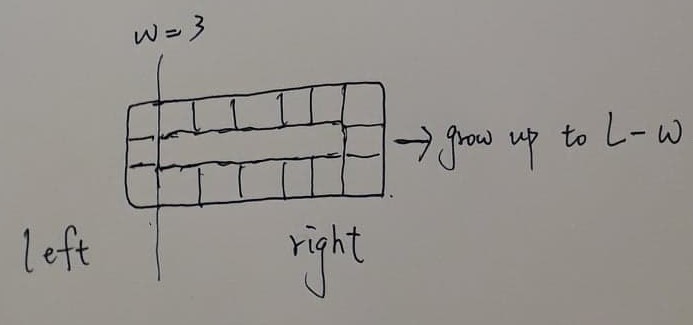 w = 3
→ grow up to L - w
left
right